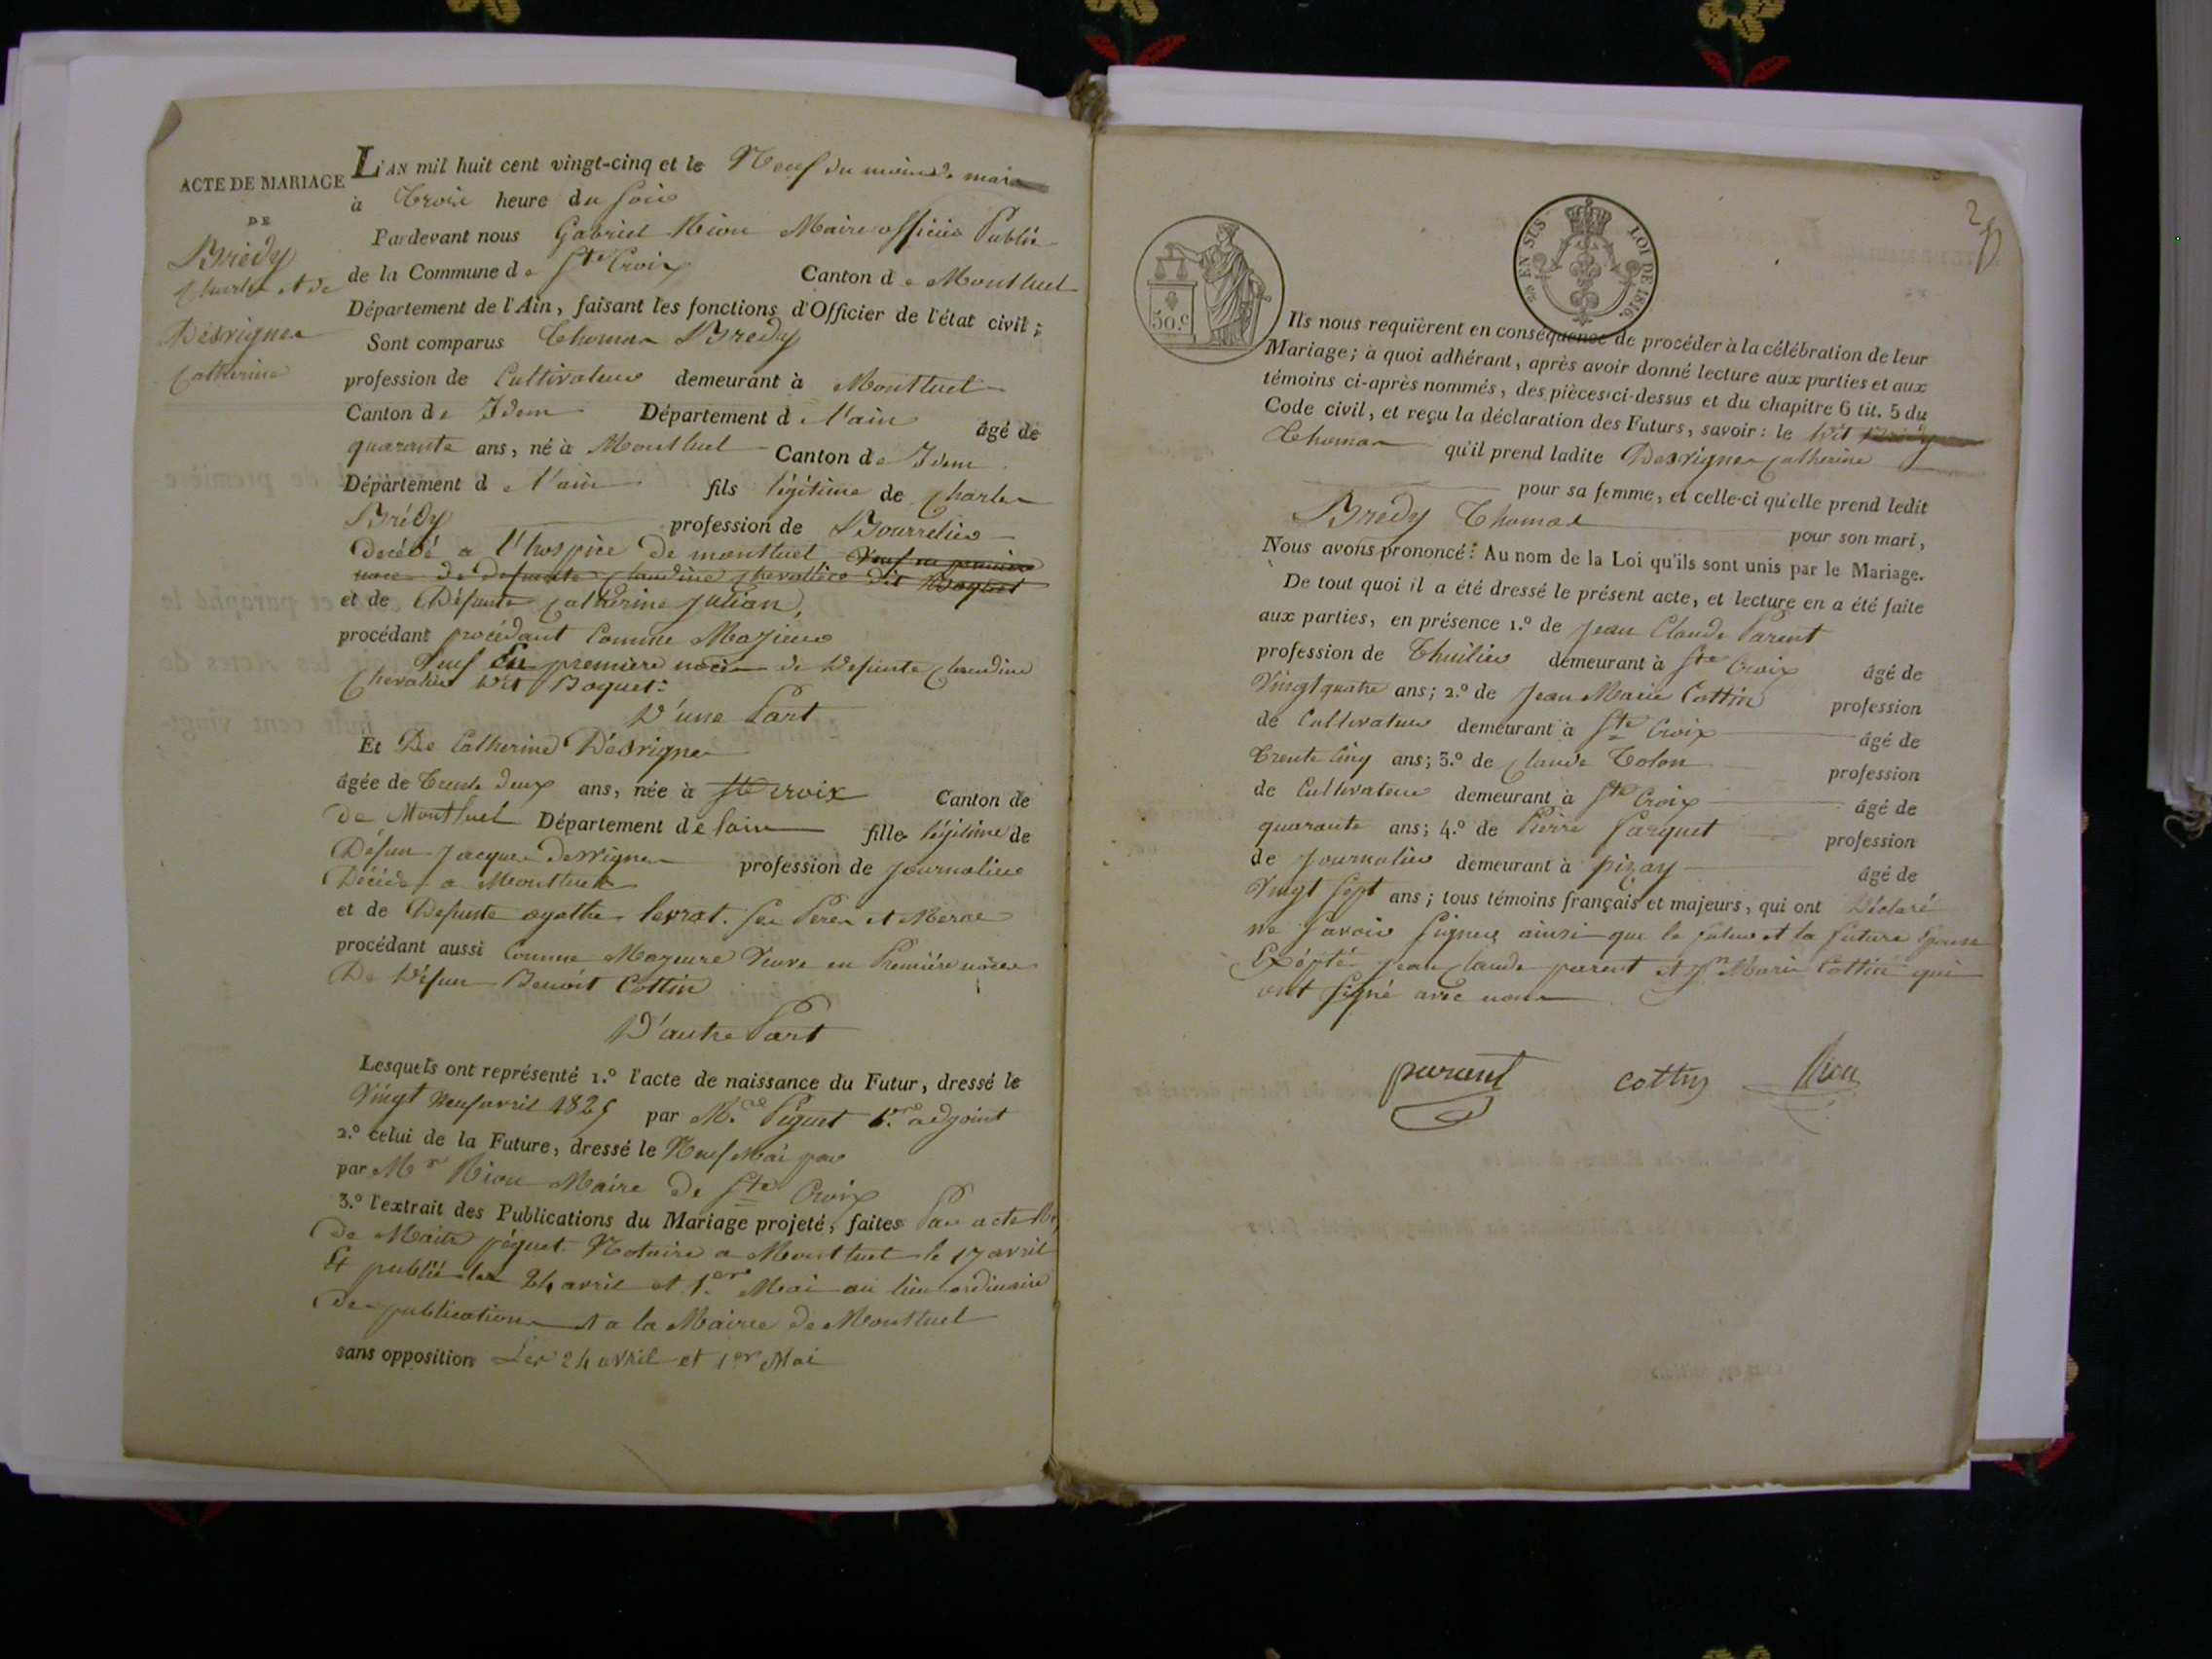 ACTE DE MARIAGE
DE
Brédy
Charles et de
Desvignes
Catherine
L'AN mil huit cent vingt-cinq et le Neuf du mois de mai
à Trois heure du Soir
Pardevant nous Gabriel Rion Maire officier Public
de la Commune de Ste Croix Canton de Montluel
Département de l'Ain, faisant les fonctions d'Officier de l'état civil;
Sont comparus Thomas Bredy
profession de Cultivateur demeurant à Montluel
Canton de Idem Département de l'ain âgé de
quarante ans, né à Montluel Canton de Idem
Département de l'ain fils légitime de Charles
Brédy profession de Bourrelier
decédé a l'hospice de montluel Veuf en premiere
noces de defunte Claudine Chevallier dit Boquet
et de Défunte Catherine Julian,
procédant procédant Comme Majeur
Veuf En premiere noces de Defunte Claudine
Chevalier dit Boquet
D'une Part
Et De Catherine Désvignes
âgée de Trente deux ans, née à Ste croix Canton de
de Montluel Département de lain fille légitime de
Défun Jacques desvignes profession de Journalier
Décédé a Montluel
et de Defunte agathe levrat. Ses Peres et Meres
procédant aussi Comme Majeure Veuve en Premiére nôces
De Défun Benoit Cottin
D'autre Part
Lesquels ont représenté 1.º l'acte de naissance du Futur, dressé le
Vingt Neuf avril 1825 par Mr. Péguet 1er adjoint
2.º celui de la Future, dressé le Neuf Mai par
par Mr Rion Maire de Ste Croix
3.º l'extrait des Publications du Mariage projeté, faites Par acte
de Maitre péguet Notaire a Montluel le 17 avril
Et publié les 24 avril et 1er Mai au lieu ordinaire
des publications et a la Mairie de Montluel
sans opposition Les 24 avril et 1er Mai
50.c
EN SUS
LOI DE 1816.
Ils nous requièrent en conséquence de procéder à la célébration de leur
Mariage; à quoi adhérant, après avoir donné lecture aux parties et aux
témoins ci-après nommés, des pièces ci-dessus et du chapitre 6 tit. 5 du
Code civil, et reçu la déclaration des Futurs, savoir: le dit Brédy
Thomas qu'il prend ladite Desvignes Catherine
pour sa femme, et celle-ci qu'elle prend ledit
Bredy Thomas pour son mari,
Nous avons prononcé: Au nom de la Loi qu'ils sont unis par le Mariage.
De tout quoi il a été dressé le présent acte, et lecture en a été faite
aux parties, en présence 1.º de Jean Claude Parent
profession de Thuilier demeurant à Ste Croix âgé de
Vingt quatre ans; 2.º de Jean Marie Cottin profession
de Cultivateur demeurant à Ste Croix âgé de
Trente Cinq ans; 3.º de Claude Tolon profession
de Cultivateur demeurant à Ste Croix âgé de
quarante ans; 4.º de Pierre Parquet profession
de Journalier demeurant à pizay âgé de
Vingt Sept ans; tous témoins français et majeurs, qui ont Déclaré
ne Savoir Signer ainsi que le futur et la future Epouse
Exépté Jean Claude parent et Jn Marie Cottin qui
ont Signé avec nous
parent cottin Rion